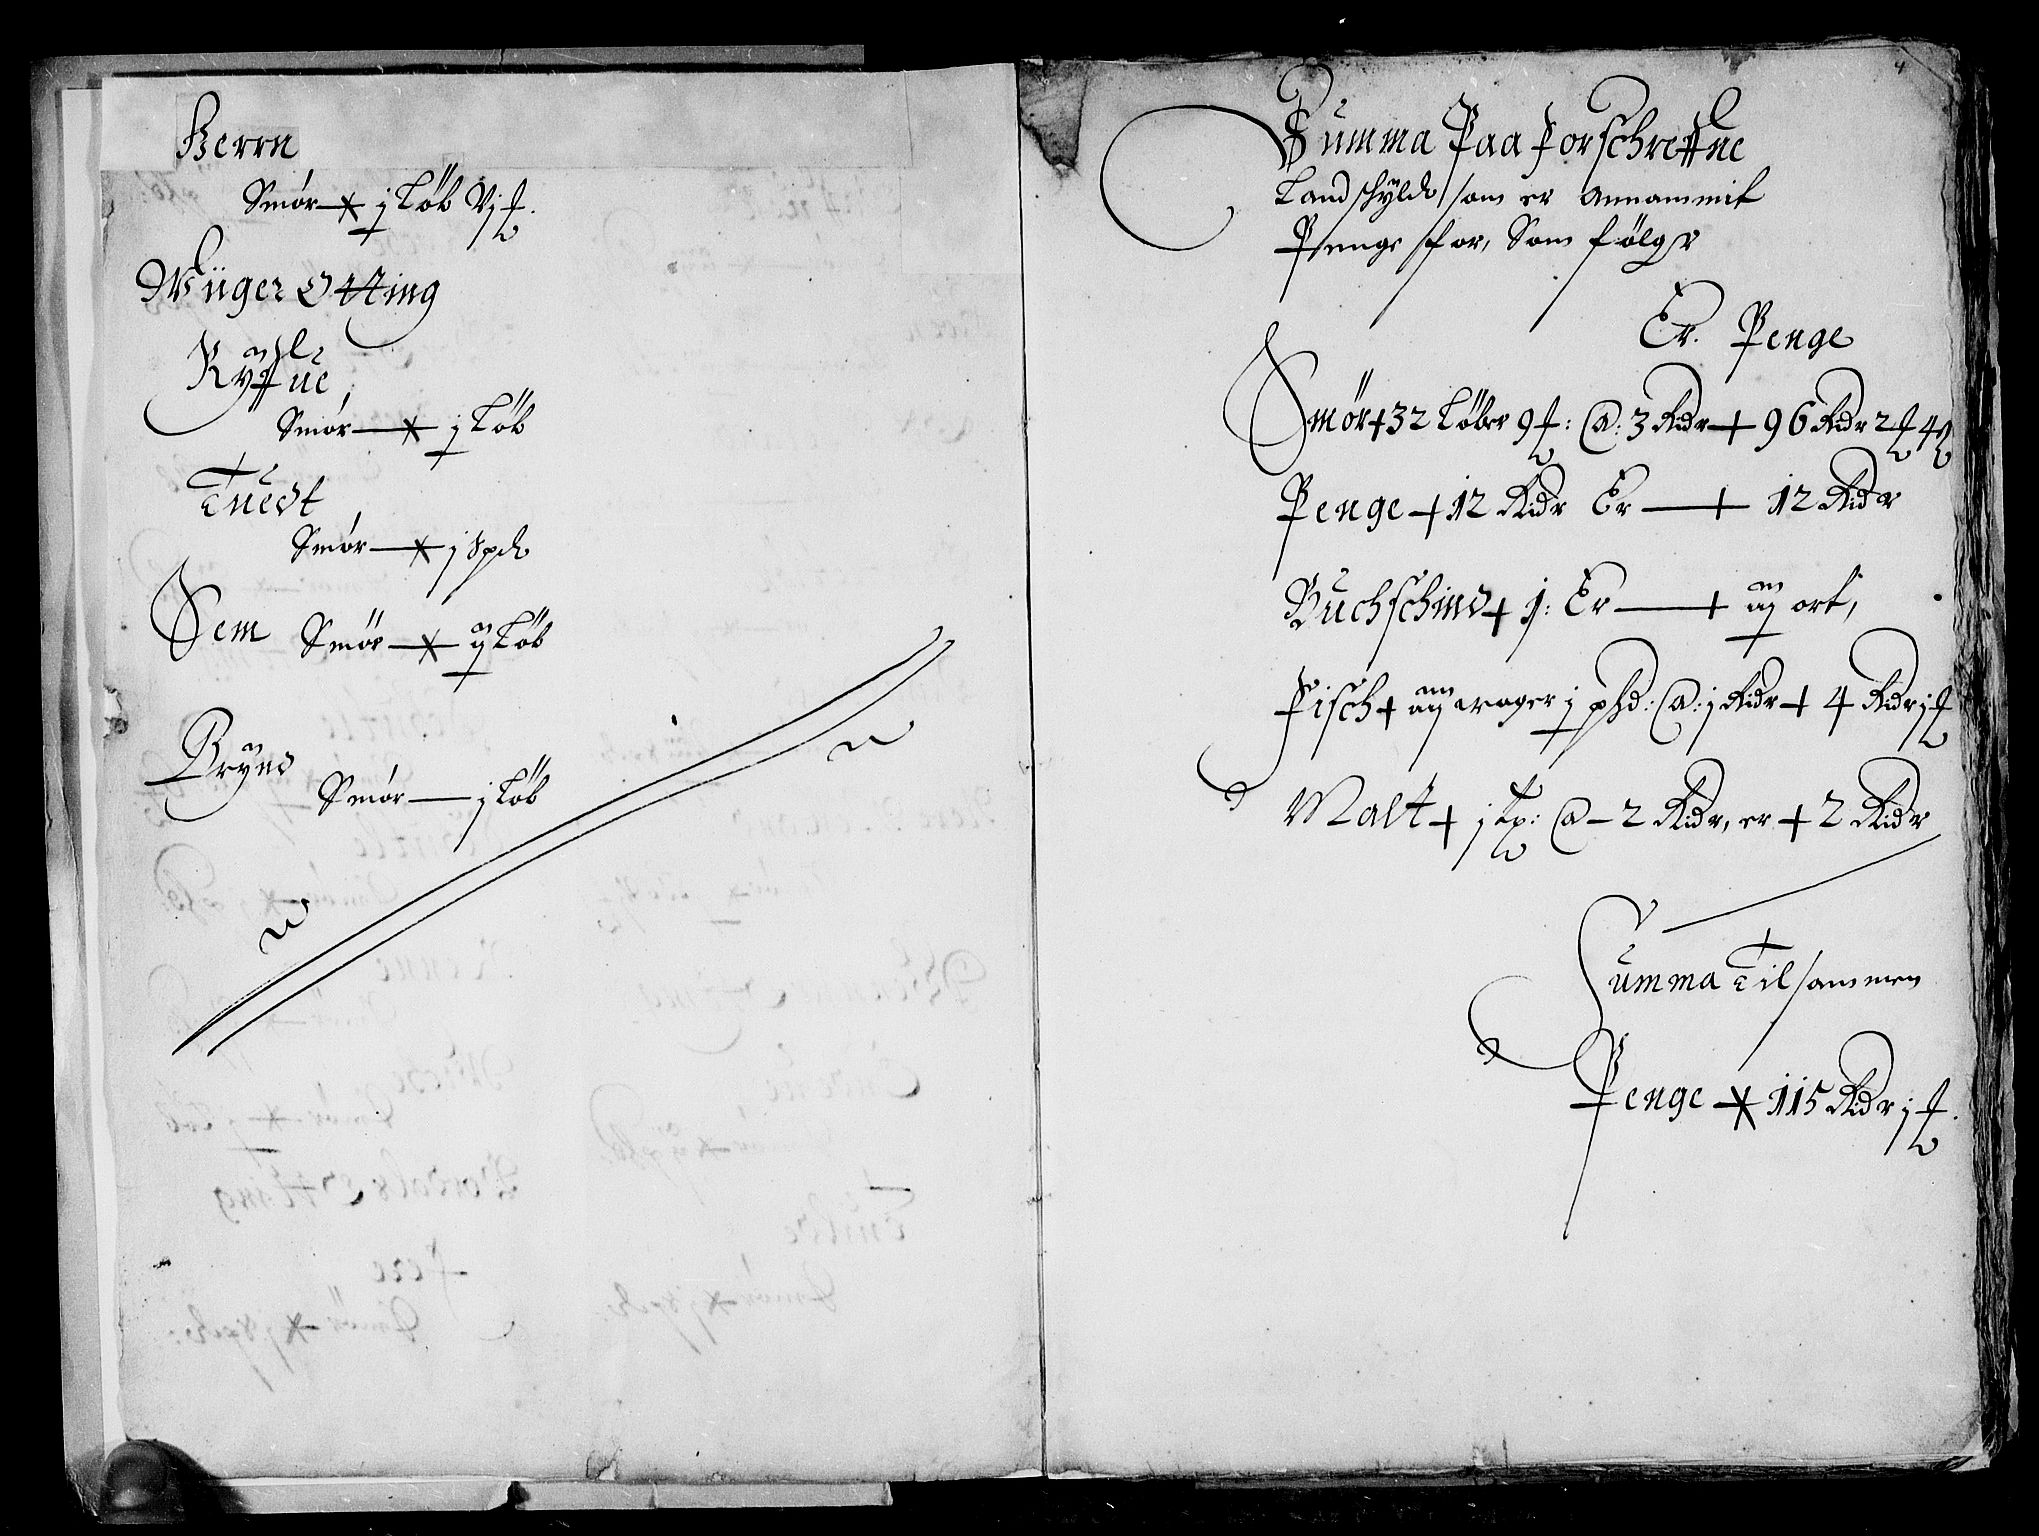 Berrn
Smór + j Löb Vj ß.
Wüger Otting
Ryffue,
Smór + j Löb
Tuedt
Smór + j Spd
Sem Smór + ij Löb
Bryne
Smór — j Löb
4
Summa Paa Forschreffne
Landschyld som er Annammit
Penge for, Som fölger
Er. Penge
Smör + 32 Löber 9 ß: @: 3 Ridr + 96 Ridr 2 ß 4
Penge + 12 Ridr Er — + 12 Ridr
Buchschind + j: Er — + iij ort,
Fisch + iiij woger j phd: @: j Ridr + 4 Ridr j ß
Malt + j tp: @ – 2 Ridr, er + 2 Ridr
Summa Tilsammen
Penge + 115 Ridr j ß.